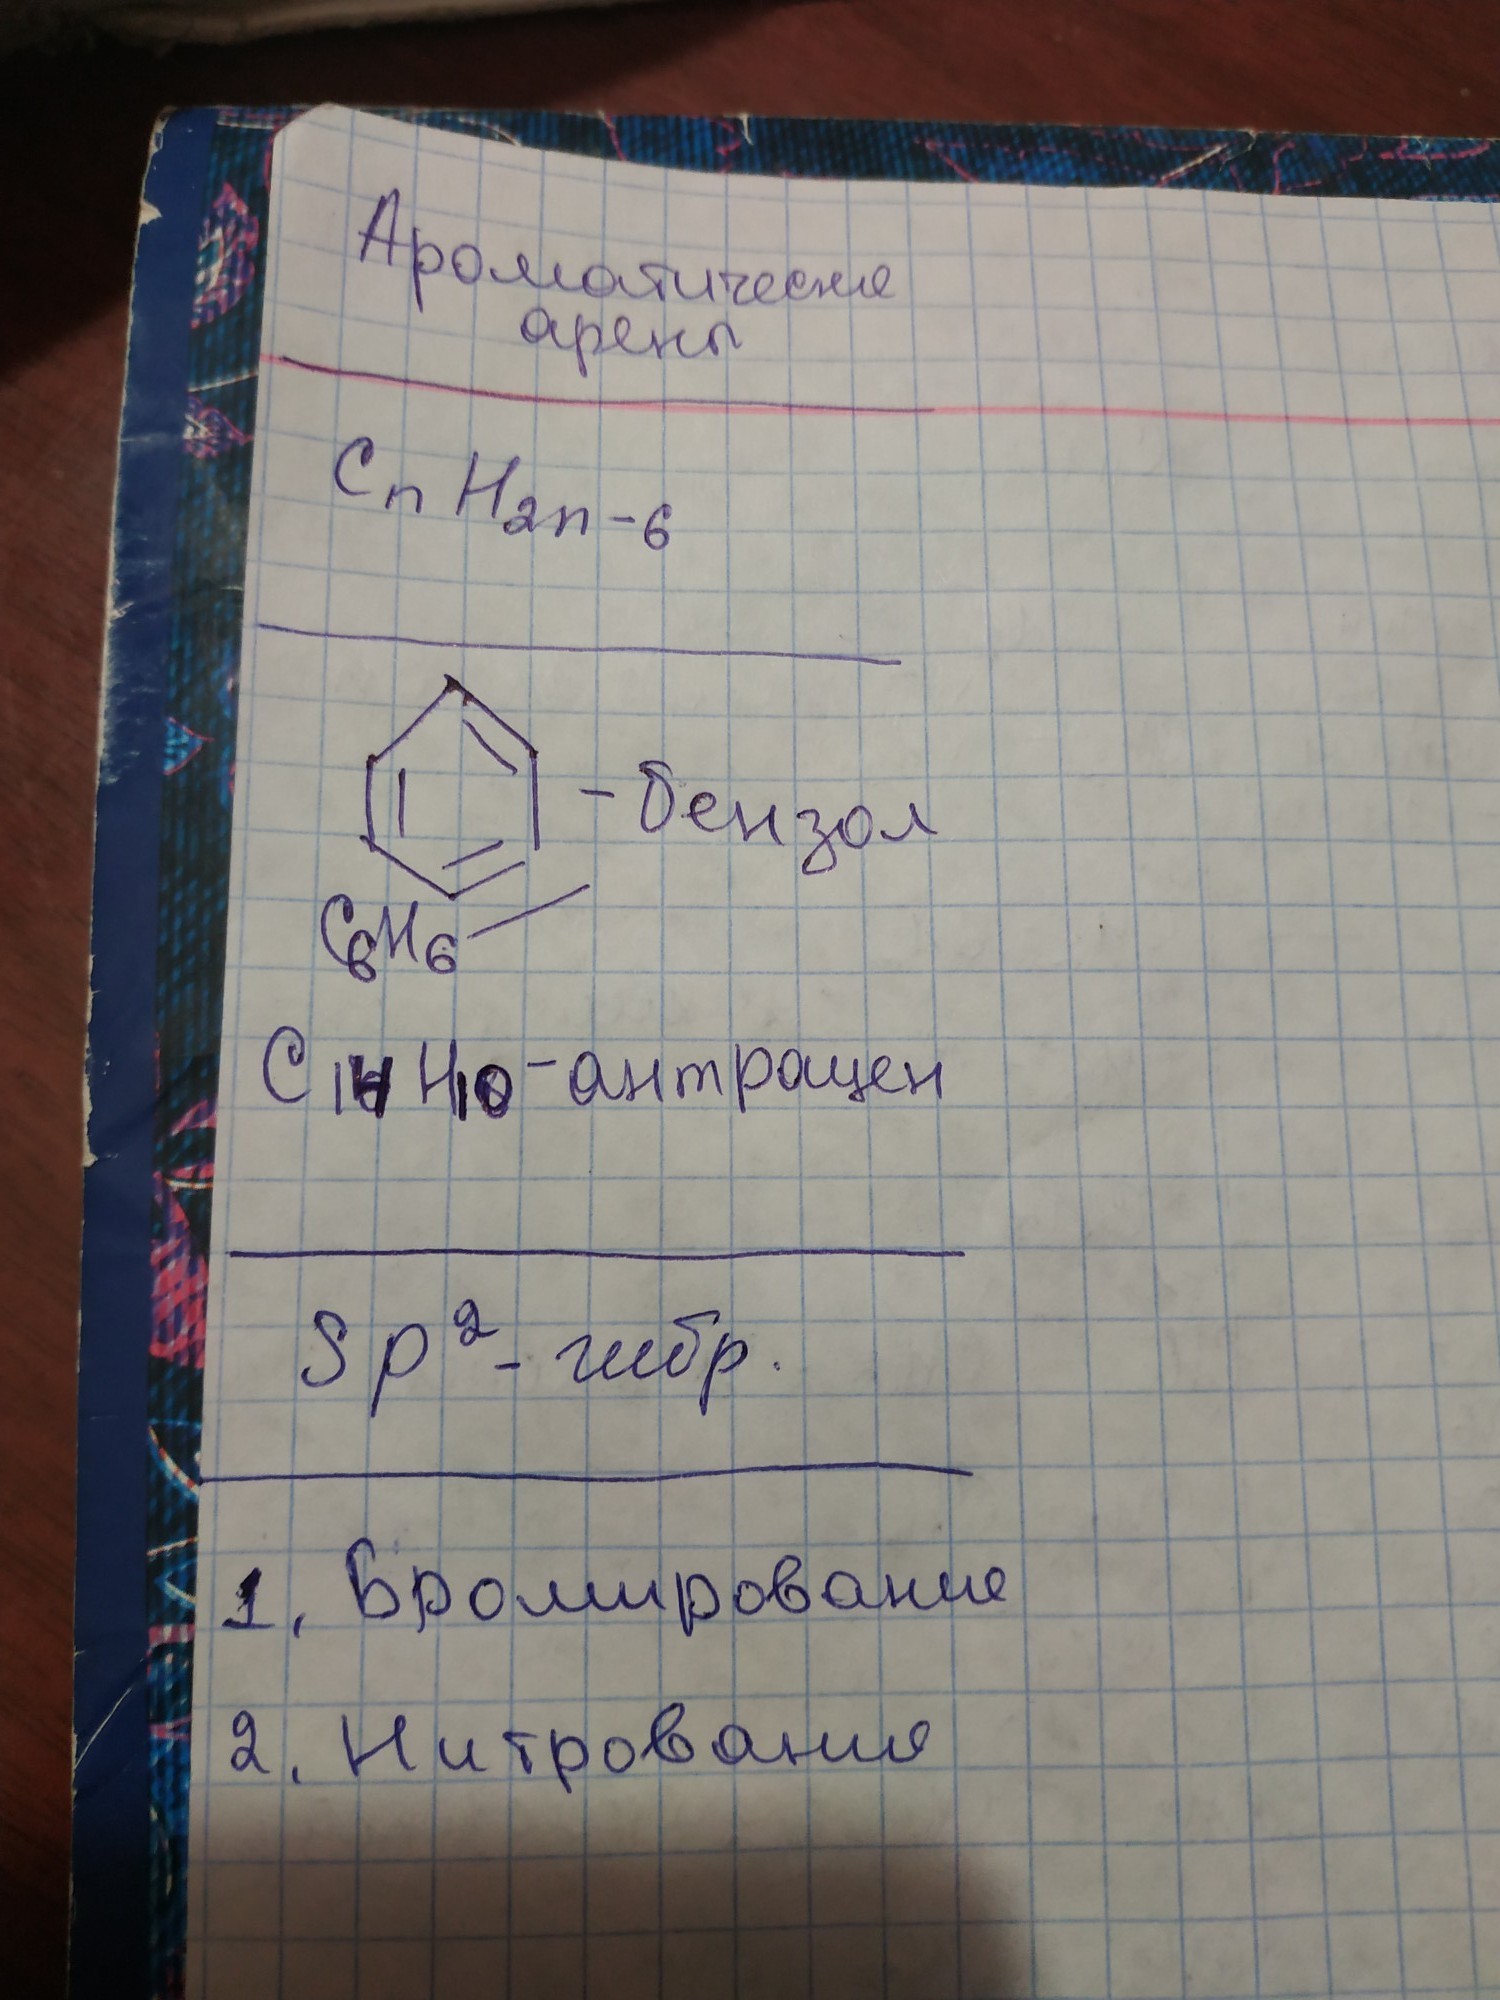 Ароматические
арены
CnH2n-6
- бензол
C6H6
C14H10 - антрацен
Sp² - гибр.
1. Бромирование
2. Нитрование